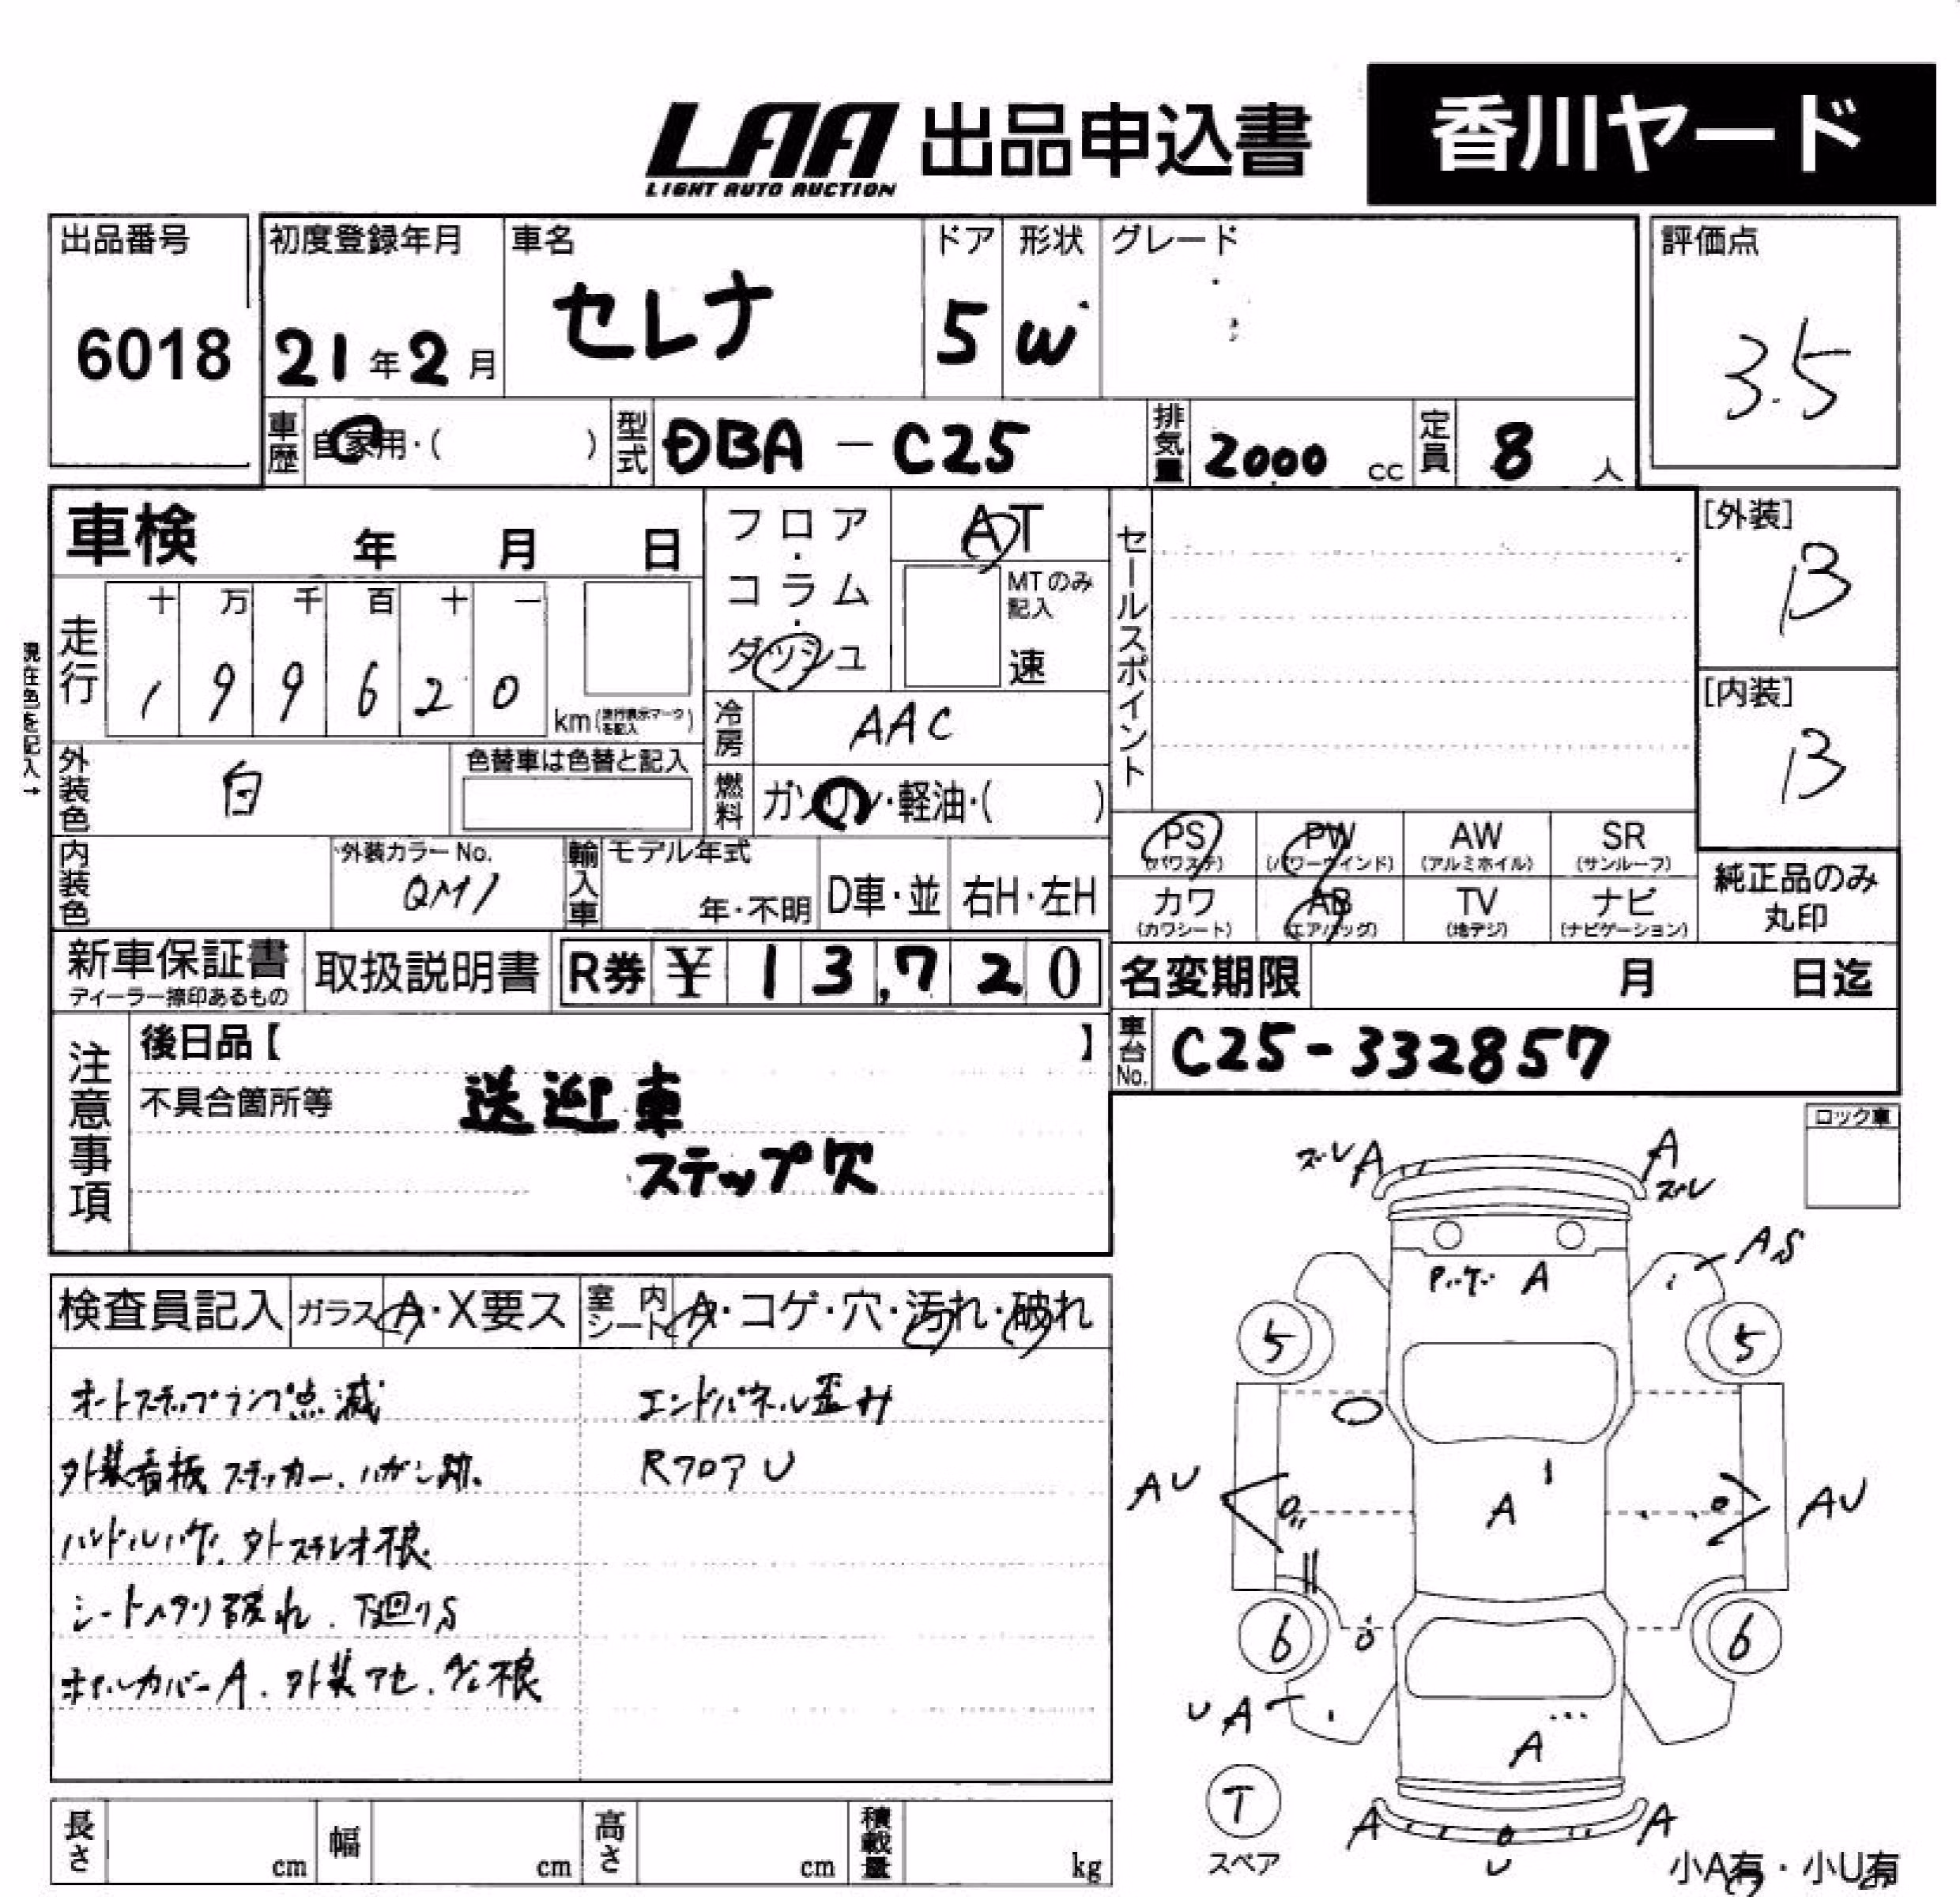 LAA 出品申込書 香川ヤード
LIGHT AUTO AUCTION
出品番号 初度登録年月 車名 ドア 形状 グレード 評価点
6018 21年2月 セレナ 5 W 3.5
車歴 自家用・( ) 型式 DBA-C25 排気量 2000 cc 定員 8 人
車検 年 月 日
フロア・コラム・ダッシュ
AT
MTのみ記入
速
セールスポイント
[外装]
B
[内装]
B
現在色を記入→
走行 十 万 千 百 十 一
1 9 9 6 2 0 km(走行表示マークを記入)
冷房 AAC
外装色 白 色替車は色替と記入
燃料 ガソリン・軽油・( )
内装色 外装カラーNo. QM1
輸入車 モデル年式 年・不明 D車・並 右H・左H
PS (パワステ) PW (パワーウインド) AW (アルミホイル) SR (サンルーフ)
カワ (カワシート) AB (エアバッグ) TV (地デジ) ナビ (ナビゲーション)
純正品のみ丸印
新車保証書 ディーラー捺印あるもの 取扱説明書 R券 ¥ 13,720
名変期限 月 日迄
注意事項 後日品【 】
車台No. C25-332857
不具合箇所等 送迎車
ステップ欠
ロック車
検査員記入 ガラス A・X要ス 室内シート A・コゲ・穴・汚れ・破れ
オートステップランプ点滅 エンドパネル歪み
外装看板ステッカー、ハガシ跡、 RフロアU
ハンドルハゲ、外ステレオ根、
シートヘタリ破れ、下廻りS
ホイルカバーA、外装アセ、
ズレA A
ズレ
AS
A
5 5
AU A AU
6 6
UA
A
T
スペア
A U A
小A有・小U有
長さ cm 幅 cm 高さ cm 積載量 kg